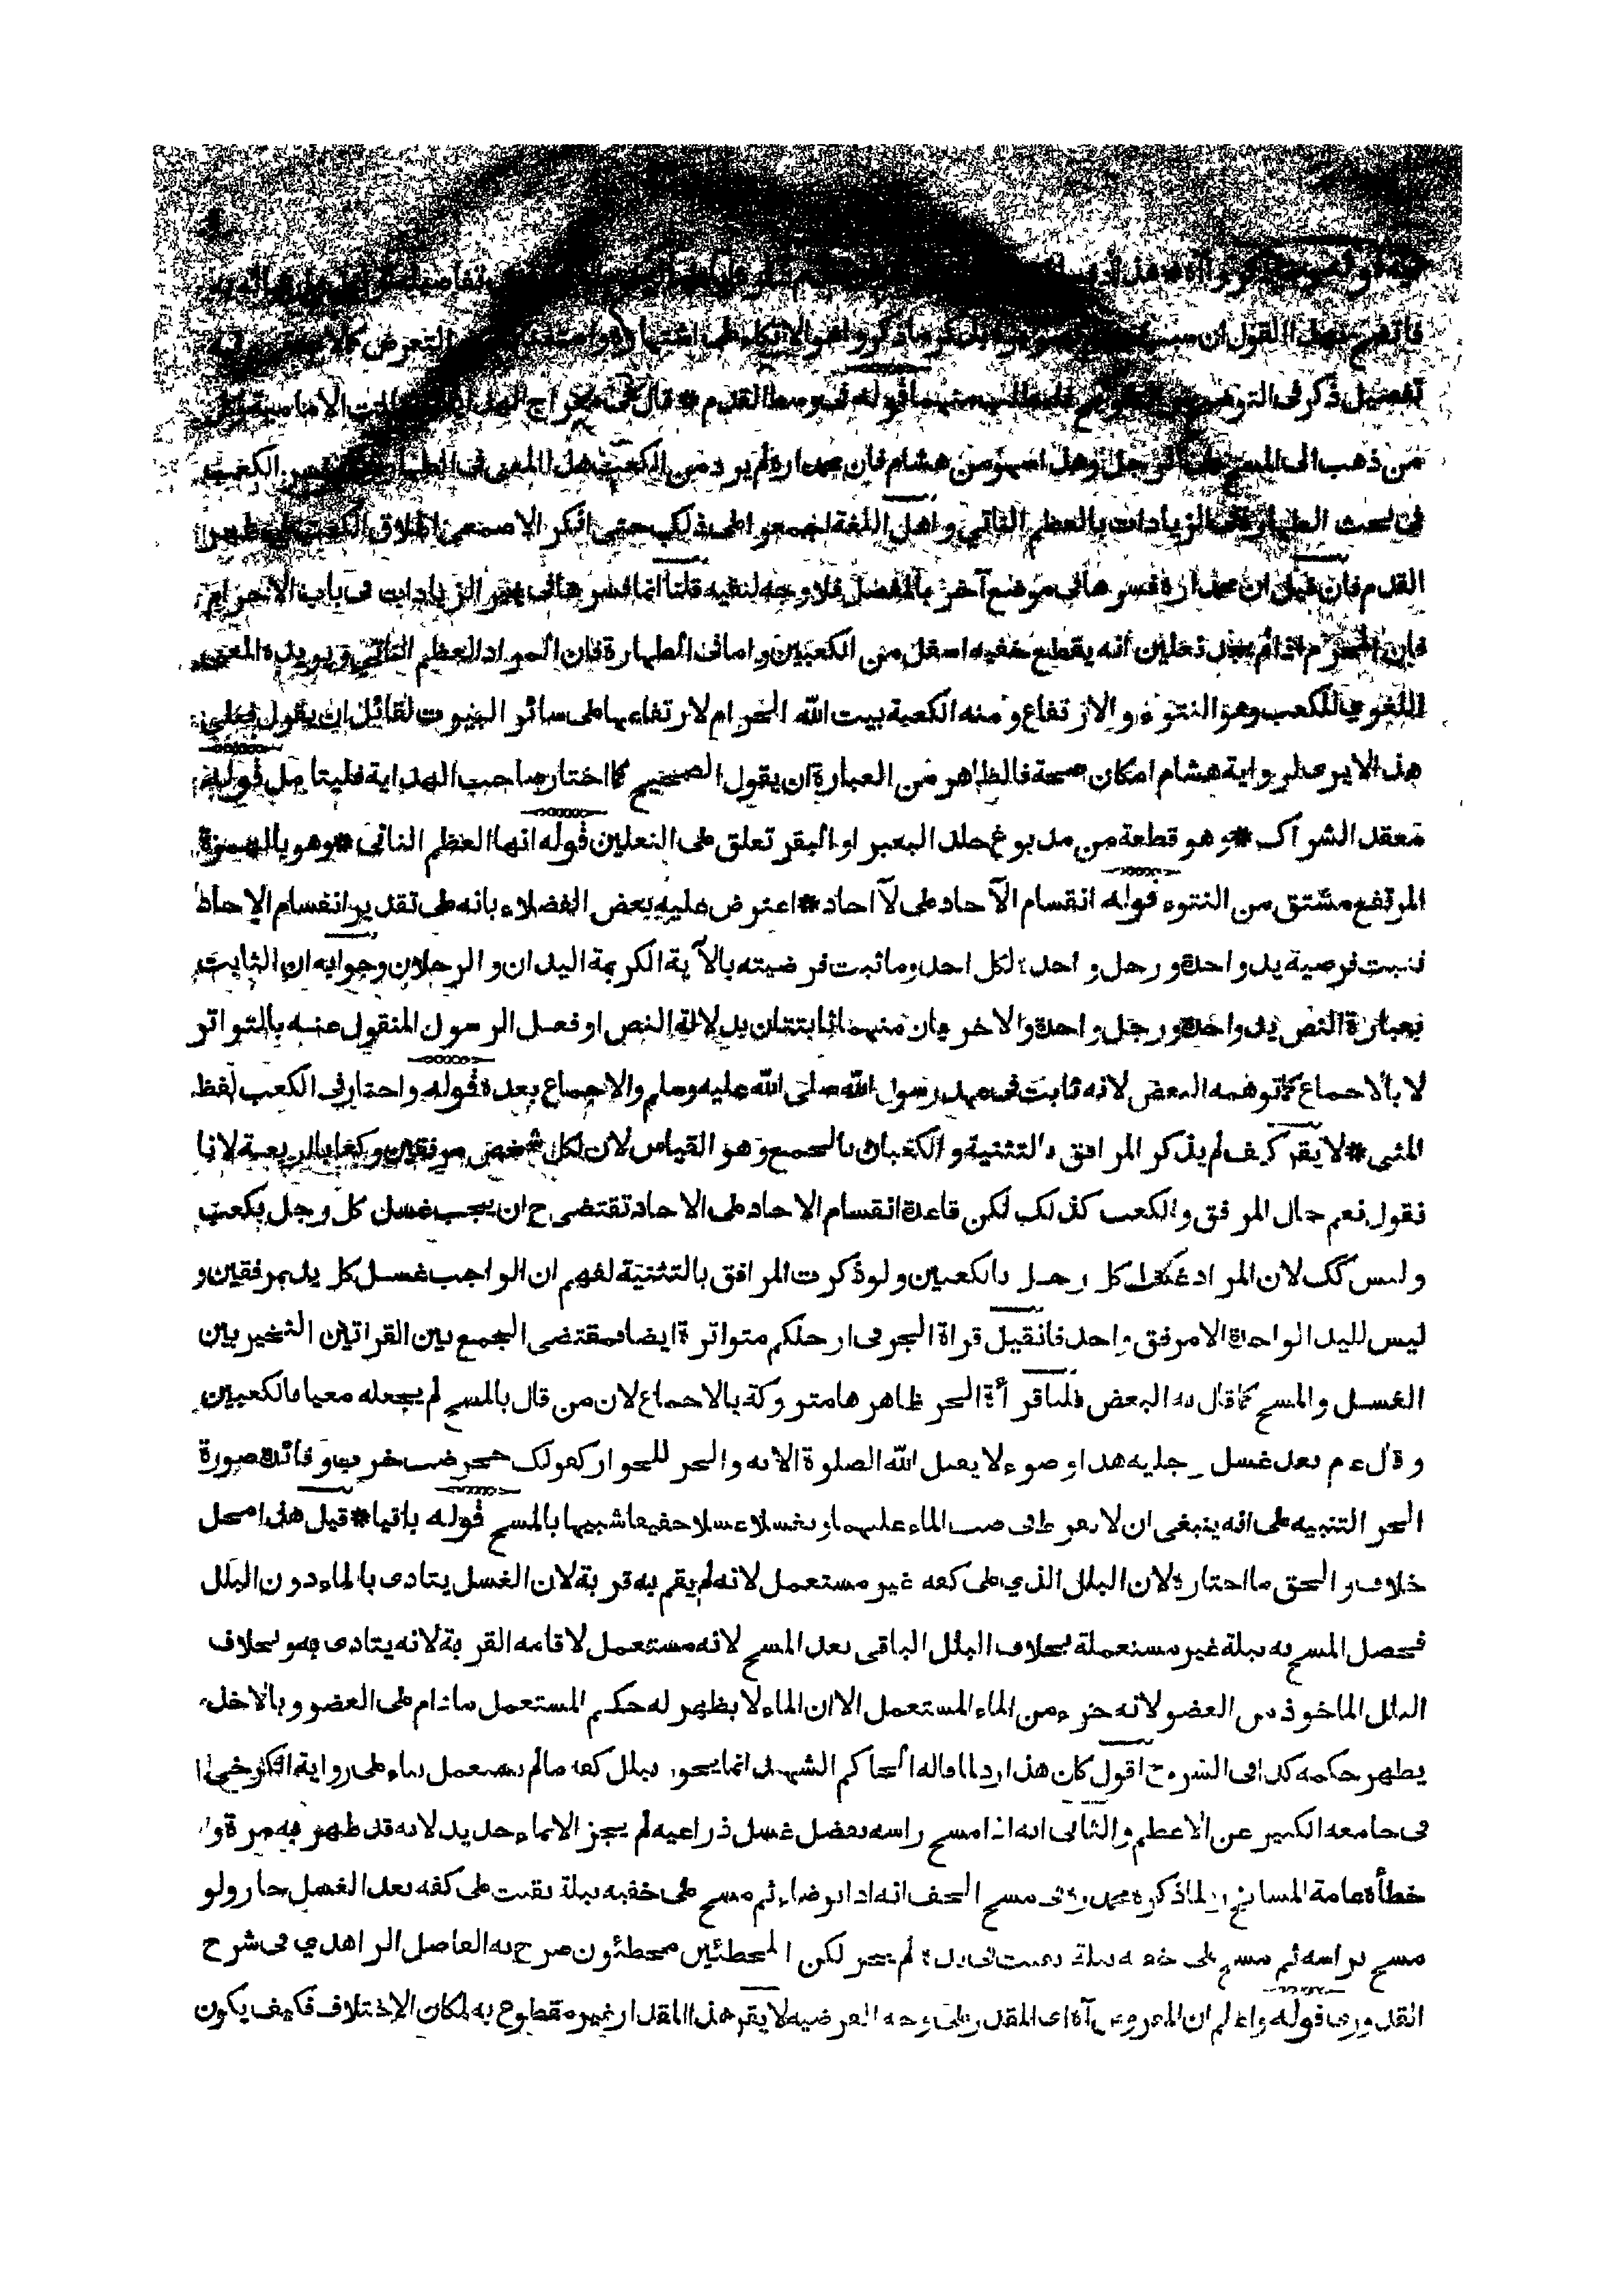 فاتضح بهذا القول ان
تفصيل ذكر في فليطلب منهما قوله في وسط القدم # قال في معراج الامامية وكل
من ذهب الى المسح على الرجل وهذا سهو من هشام فان محمدا ره لم يرد من الكعب هذا المعنى في الكعب
في بحث الطهارة في الزيادات بالعظم الناتي واهل اللغة اجمعوا على ذلك حتى انكر الاصمعي اطلاق الكعب على ظهر
القدم فان قيل ان محمدا ره فسرها في موضع آخر بالمفصل فلا وجه لنفيه قلنا انما فسرها في الزيادات في باب الاحرام
فان المحرم اذا لم يجد نعلين انه يقطع خفيه اسفل من الكعبين واما في الطهارة فان المراد العظم الناتي ويويده المعنى
اللغوي للكعب وهو النتوء والارتفاع ومنه الكعبة بيت الله الحرام لارتفاعها على سائر البيوت لقائل ان يقول فعلى
هذا لا يرى لرواية هشام امكان صحة فالظاهر من العبارة ان يقول الصحيح كما اختار صاحب الهداية فليتامل قوله
معقد الشراك # وهو قطعة من مدبوغ جلد البعير او البقر تعلق على النعلين قوله انها العظم الناتى # وهو بالهمزة
المرتفع مشتق من النتوء قوله انقسام الآحاد على لآ احاد # اعترض عليه بعض الفضلاء بانه على تقدير انقسام الاحاد
فتبت فرضية يد واحدة ورجل واحدة لكل احد وما ثبت فرضيته بالآية الكريمة اليدان والرجلان وجوابه ان الثابت
بعبارة النص يد واحدة ورجل واحدة والاخريان منهما ثابتتان بدلالة النص او فعل الرسول المنقول عنه بالتواتر
لا بالاجماع كما توهمه البعض لانه ثابت في عهد رسول الله صلى الله عليه وسلم والاجماع بعده قوله واختار في الكعب لفظ
المثنى # لا يقر كيف لم يذكر المرافق بالتثنية والكعبان بالجمع وهو القياس لان لكل شخص مرفقين وكعابا اربعة لانا
نقول نعم حال المرفق والكعب كذلك لكن قاعدة انقسام الاحاد على الاحاد تقتضى ح ان يجب غسل كل رجل بكعب
وليس كك لان المراد غسل كل رجل بالكعبين ولو ذكرت المرافق بالتثنية لفهم ان الواجب غسل كل يد بمرفقين و
ليس لليد الواحدة الا مرفق واحد فان قيل قراة الجر فى ارجلكم متواترة ايضا فمقتضى الجمع بين القراتين التخيير بين
الغسل والمسح كما قال به البعض قلنا قرأة الجر ظاهرها متروكة بالاجماع لان من قال بالمسح لم يجعله مغيا بالكعبين
وقال ع م بعد غسل رجليه هذا وضوء لا يقبل الله الصلوة الا به والجر للجوار كقولك جحر ضب خرب وفائدة صورة
الجر التنبيه على انه ينبغى ان لا يفرط فى صب الماء عليهما ويغسلا غسلا خفيفا شبيها بالمسح قوله باقيا # قيل هذا محل
خلاف والحق ما اختاره لان البلل الذي على كفه غير مستعمل لانه لم يقم به قربة لان الغسل يتادى بالماء دون البلل
فحصل المسح به ببلة غير مستعملة بخلاف البلل الباقى بعد المسح لانه مستعمل لاقامه القربة لانه يتادى به وبخلاف
البلل الماخوذ من العضو لانه جزء من الماء المستعمل الا ان الماء لا يظهر له حكم المستعمل مادام على العضو وبالاخذ
يظهر حكمه كذا فى الشروح اقول كان هذا رد لما قاله الحاكم الشهيد انما يجوز ببلل كفه مالم يستعمل بناء على رواية الكرخى
فى جامعه الكبير عن الاعظم والثانى انه اذا مسح راسه بفضل غسل ذراعيه لم يجز الا بماء جديد لانه قد ظهر به مرة و
خطأه عامة المشايخ لما ذكره محمد ره فى مسح الخف انه اذا توضاء ثم مسح على خفيه ببلة بقيت على كفه بعد الغسل جاز ولو
مسح براسه ثم مسح على خفه ببلة بقيت فى يده لم يجز لكن المخطئين مخطئون صرح به الفاضل الزاهدي فى شرح
القدورى قوله واعلم ان المفروض آه اى المقدر على وجه الفرضيه لا يقر هذا المقدار غير مقطوع به لمكان الاختلاف فكيف يكون